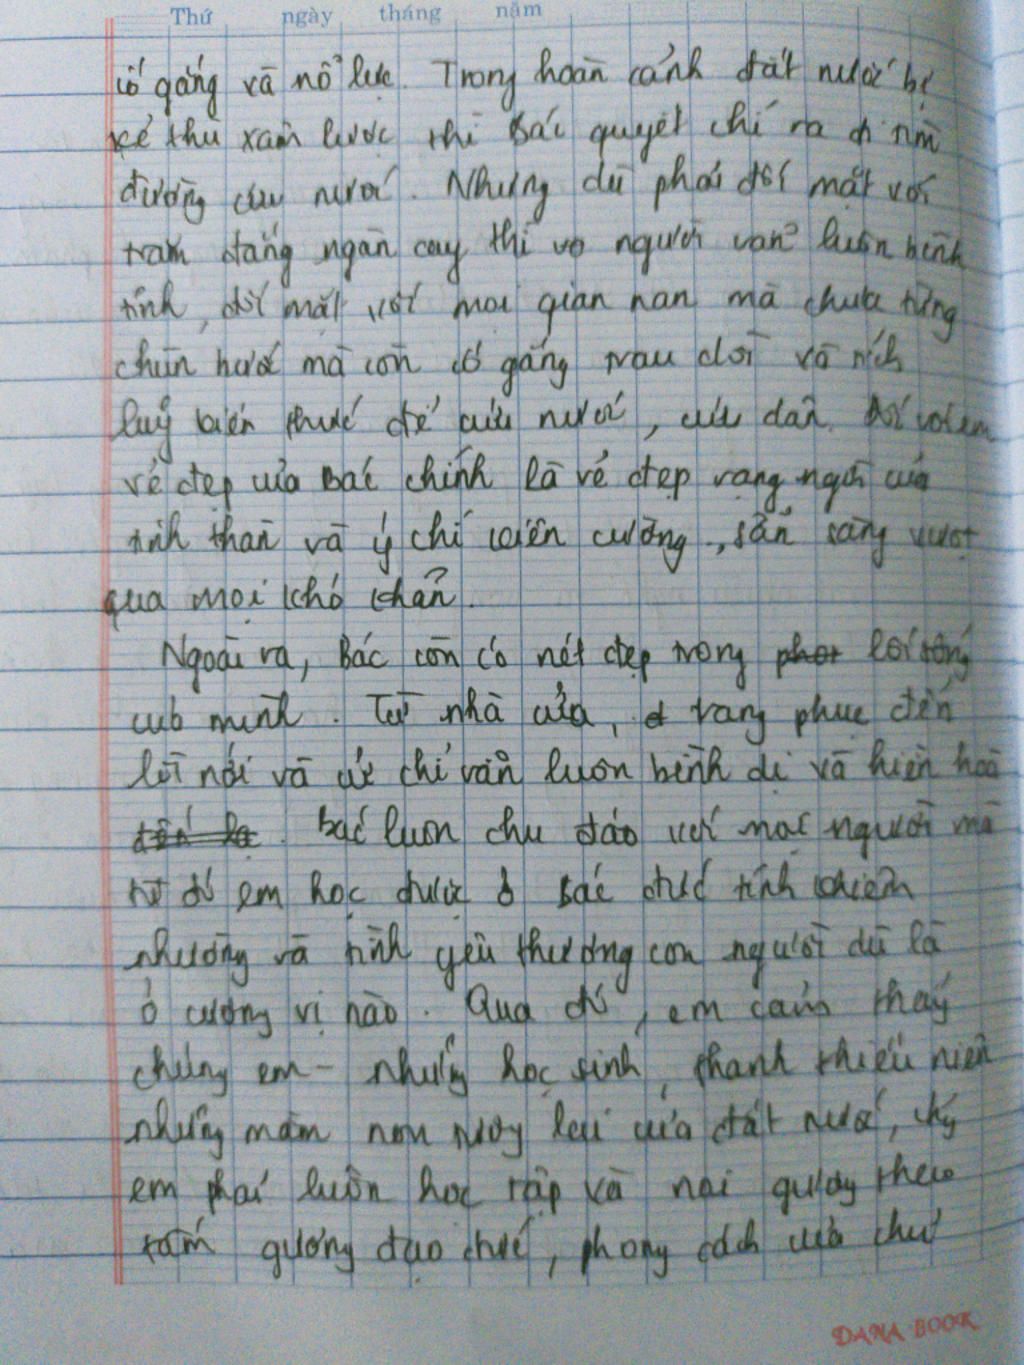 Thứ ngày tháng năm
cố gắng và nổ lực. Trong hoàn cảnh đất nước bị
kẻ thù xâm lược thì Bác quyết chí ra đi tìm
đường cứu nước. Nhưng dù phải đối mặt với
trăm đắng ngàn cay thì vo người vẫn luôn bình
tĩnh, đối mặt với mọi gian nan mà chưa từng
chùn bước mà còn cố gắng trau dồi và tích
luỹ kiến thức để cứu nước, cứu dân. Đối với em
vẻ đẹp của Bác chính là vẻ đẹp rạng ngời của
tinh thần và ý chí kiên cường, sẵn sàng vượt
qua mọi khó khăn.
Ngoài ra, Bác còn có nét đẹp trong lối sống
của mình. Từ nhà cửa, trang phục đến
lời nói và cử chỉ vẫn luôn bình dị và hiền hoà
. Bác luôn chu đáo với mọi người mà
từ đó em học được ở Bác đức tính khiêm
nhường và tình yêu thương con người dù là
ở cương vị nào. Qua đó, em cảm thấy
chúng em - những học sinh, thanh thiếu niên
những mầm non tương lai của đất nước, chúng
em phải luôn học tập và noi gương theo
tấm gương đạo đức, phong cách của chủ
DANA BOOK